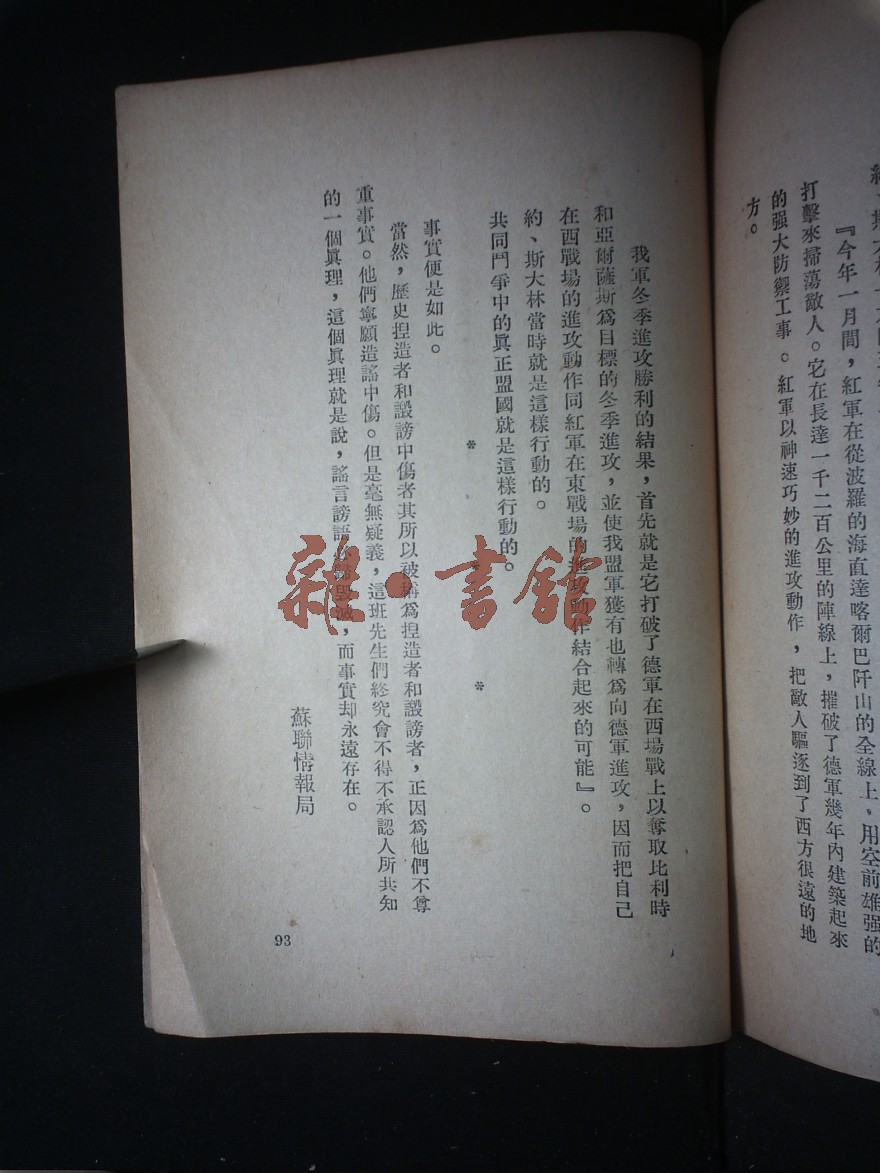 『今年一月間，紅軍在從波羅的海直達喀爾巴阡山的全線上，用空前雄强的
打擊來掃蕩敵人。它在長達一千二百公里的陣線上，摧破了德軍幾年內建築起來
的强大防禦工事。紅軍以神速巧妙的進攻動作，把敵人驅逐到了西方很遠的地
方。
我軍冬季進攻勝利的結果，首先就是它打破了德軍在西場戰上以奪取比利時
和亞爾薩斯爲目標的冬季進攻，並使我盟軍獲有也轉爲向德軍進攻，因而把自己
在西戰場的進攻動作同紅軍在東戰場的進攻動作結合起來的可能』。
約、斯大林當時就是這樣行動的。
共同鬥爭中的眞正盟國就是這樣行動的。
* * *
事實便是如此。
當然，歷史捏造者和譭謗中傷者其所以被稱爲捏造者和譭謗者，正因爲他們不尊
重事實。他們寧願造謠中傷。但是毫無疑義，這班先生們終究會不得不承認人所共知
的一個眞理，這個眞理就是說，謠言謗語必歸毀滅，而事實却永遠存在。
蘇聯情報局
93
雜書館